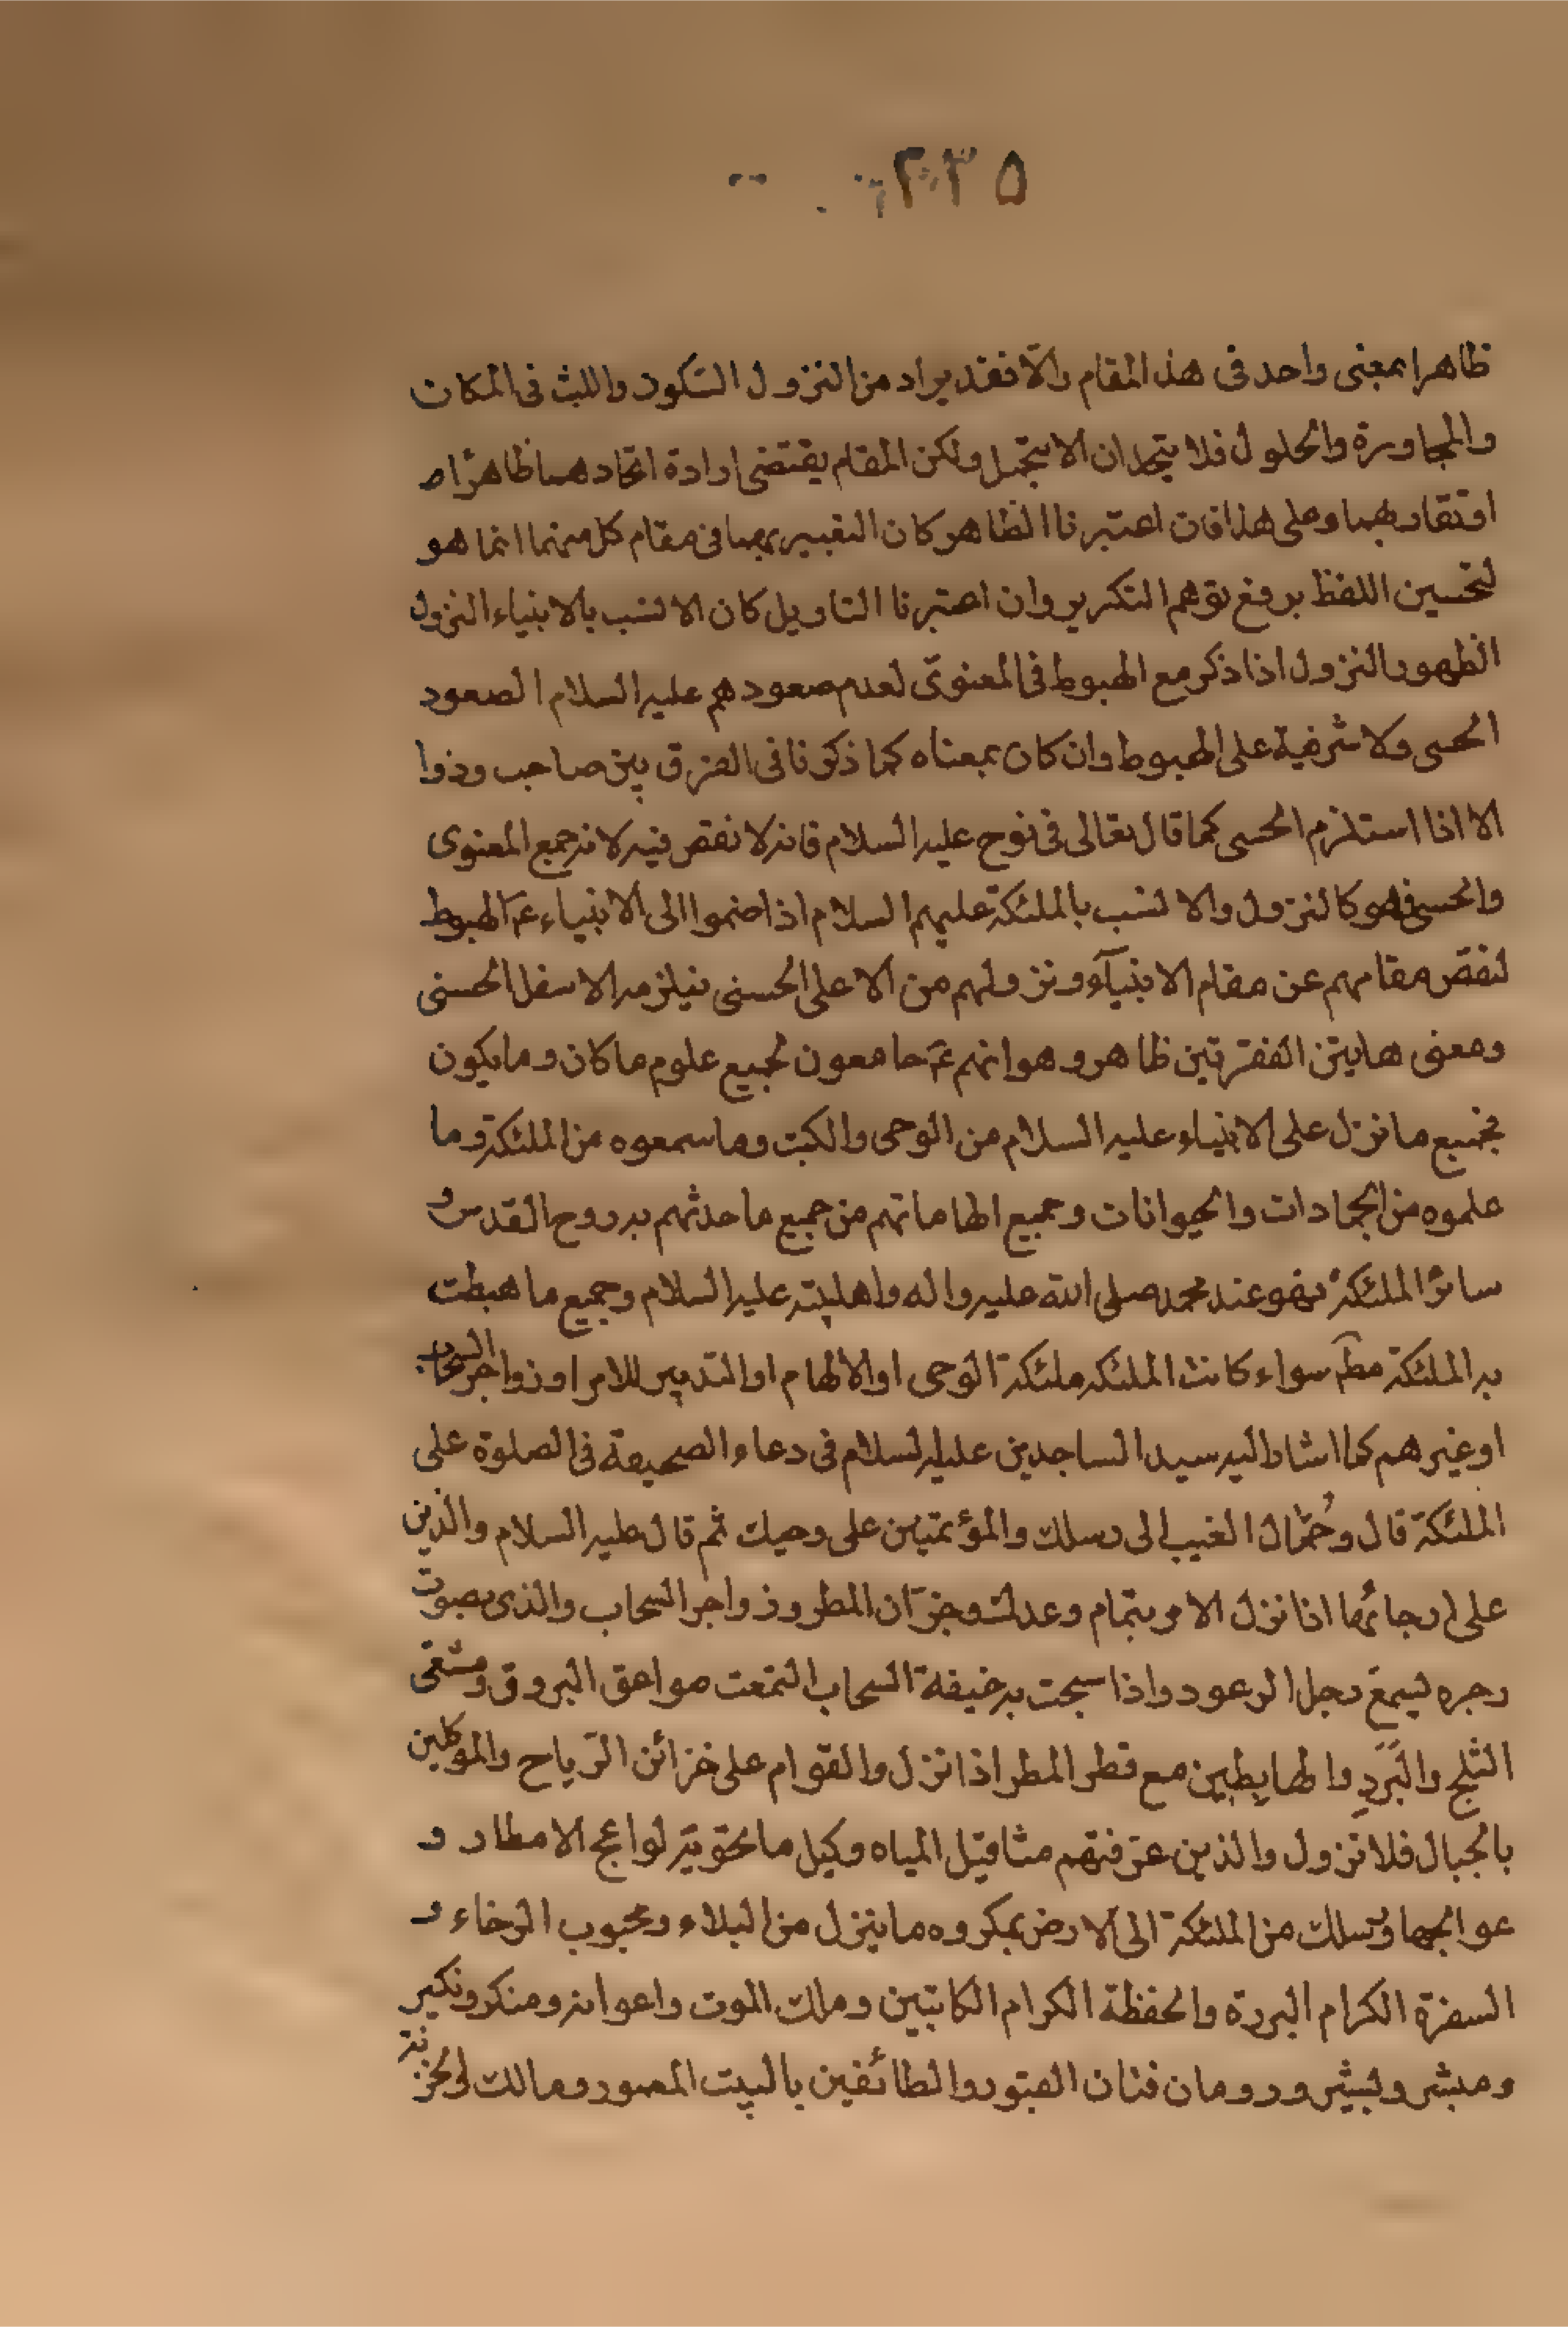 ٢٣٥
ظاهرا بمعنى واحد فى هذا المقام والّا فقد يراد من النزول السكون واللبث فى المكان
والمجاورة والحلول فلا يتحدان الا بتجمل ولكن المقام يقتضى ارادة اتحادهما ظاهرًا
وعلى هذا فان اعتبرنا الظاهر كان التعبير بهما فى مقام كل منهما انما هو
لتحسين اللفظ برفع توهم التكرير وان اعتبرنا التاويل كان الانسب بالانبياء النزول
الظهور بالنزول اذا ذكر مع الهبوط فى المعنوىّ لعدم صعودهم عليه السلام الصعود
الحسى ولا شرفية على الهبوط وان كان بمعناه كما ذكرنا فى الفرق بين صاحب وذوا
الا اذا استلزم الحسى كما قال تعالى فى نوح عليه السلام فانه لا نقص فيه لانه جمع المعنوى
والحسى فهو كالنزول والانسب بالملئكة عليهم السلام اذا ضموا الى الانبياء عَ الهبوط
لنقص مقامهم عن مقام الانبيآء ونزولهم من الاعلى الحسنى فيلزمه الاسفل الحسنى
ومعنى هايتن الفقرتين ظاهر وهو انهم عَ جامعون لجميع علوم ما كان وما يكون
فجميع ما نزل على الانبياء عليه السلام من الوحى والكتب وما سمعوه من الملئكة وما
علموه من الجمادات والحيوانات وجميع الهاماتهم من جميع ما حدثهم به روح القدس و
سائر الملئكة فهو عند محمد صلى الله عليه واله واهلبيته عليه السلام وجميع ما هبطت
به الملئكة مطَ سواء كانت الملئكه ملئكة الوحى او الالهام او التدبير للامر او زواجر السحاب
او غيرهم كما اشار اليه سيد الساجدين عليه السلام فى دعاء الصحيفة فى الصلوة على
الملئكة قال وحُمّال الغيب الى رسلك والمؤتمنين على وحيك ثم قال عليه السلام والذين
على ارجائها اذا نزل الامر بتمام وعدك وخزّان المطر وزواجر السحاب والذى بصوت
زجره يسمع زجل الرعود واذا سبحت به خيفة السحاب التمعت صواعق البروق ومشيعى
الثلج والبَرَدِ والهابطين مع قطر المطر اذا نزل والقوام على خزائن الرّياح والموكلين
بالجبال فلا تزول والذين عرّفتهم مثاقيل المياه وكيل ما تحويه لواعج الامطار و
عوالجها ورسلك من الملئكة الى الارض بمكروه ما ينزل من البلاء ومحبوب الرخاء و
السفرة الكرام البررة والحفظة الكرام الكاتبين وملك الموت واعوانه ومنكر ونكير
ومبشر وبشير ورومان فتان القبور والطائفين بالبيت المعمور ومالك والخزنة